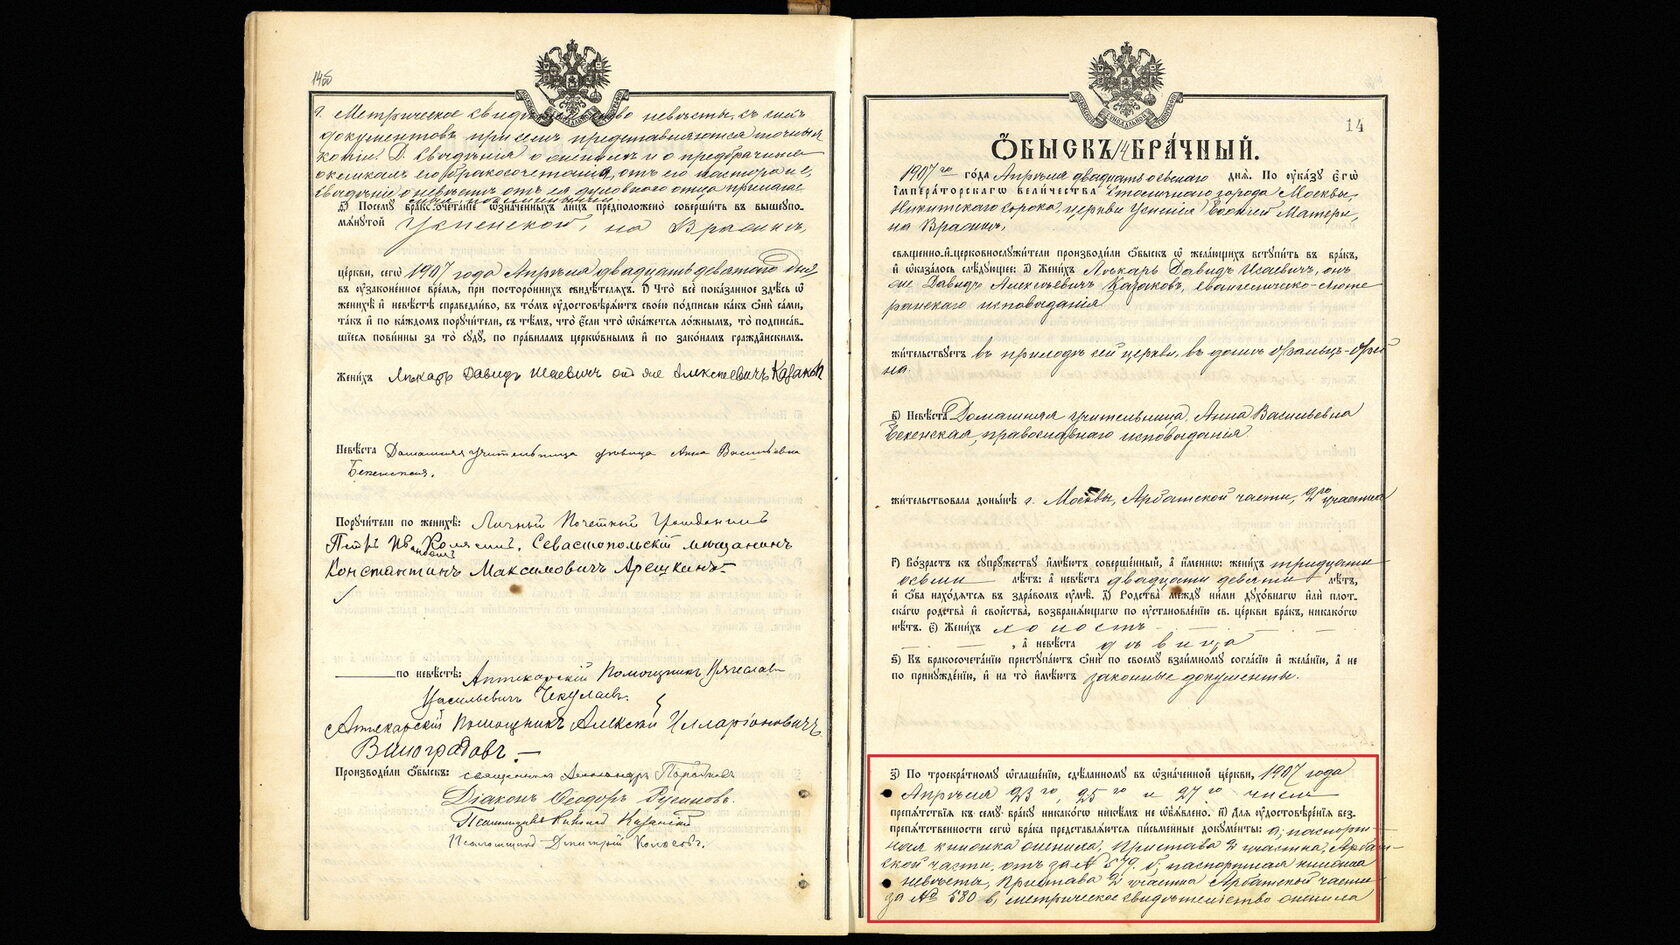 145
г. Метрическое свидетельство невесты, съ сихъ
документовъ при семъ представляются точныя
копіи. Д. Свѣдѣнія о женихѣ и о предбрачныхъ
окликахъ его бракосочетанія, отъ его пастора и е,
свѣдѣніе о невѣстѣ отъ ея духовнаго отца
д҃) Посему бракосочетаніе ѡзначенныхъ лицъ предположено совершить въ вышеупо-
мянутой Успенской, на Вражкѣ,
церкви, сегѡ 1907 года Апрѣля двадцать девятого дня
въ узаконенное время, при постороннихъ свидѣтеляхъ. і҃) Что всё показанное здѣсь ѡ
женихѣ и невѣстѣ справедливо, въ томъ удостовѣряютъ своею подписью какъ они сами,
такъ и по каждомъ поручители, съ тѣмъ, что если что ѡкажется ложнымъ, то подписав-
шіеся повинны за то суду, по правиламъ церковнымъ и по законамъ гражданскимъ.
Женихъ Лѣкарь Давидъ Исаевичъ онъ же Алексѣевичъ Казаковъ
Невѣста Домашняя учительница дѣвица Анна Васильевна
Бекенская.
Поручители по женихѣ: Личный Почетный Гражданинъ
Петръ Ивановъ Сeвастопольскій мѣщанинъ
Константинъ Максимовичъ Арешкинъ
по невѣстѣ: Аптекарскій Помощникъ Вячеслав
Васильевичъ Чекулаевъ.
Аптекарскій помощникъ Алексѣй Илларіоновичъ
Виноградовъ.
Производили ѡбыскъ: священникъ Александръ
Діаконъ Ѳеодоръ Русиновъ.
Псаломщикъ Николай
Псаломщикъ Дмитрій
14
Ѻбыскъ 14 брачный.
1907го года Апрѣля двадцать осьмаго дня. По указу єгѡ
императорскагѡ величества Столичнаго города Москвы,
Никитскаго сорока, церкви Успенія Божіей Матери,
на Вражкѣ,
священно-и-церковнослужители производили ѡбыскъ ѡ желающихъ вступить въ бракъ,
и ѡказалось слѣдующее: а҃) Женихъ Лѣкарь Давидъ Исаевичъ, онъ
же Давидъ Алексѣевичъ Казаковъ, евангелическо-люте
ранскаго исповѣданія
жительствуетъ въ приходѣ сей церкви, въ домѣ Фальцъ-Фей
на
в҃) Невѣста Домашняя учительница, Анна Васильевна
Бекенская, православнаго исповѣданія.
жительствовала донынѣ г. Москвы, Арбатской части, 2го участка
г҃) Возрастъ къ супружеству имѣютъ совершенный, а именно: женихъ тридцати
осьми лѣтъ: а невѣста двадцати девяти лѣтъ,
и оба находятся въ здравомъ умѣ. д҃) Родства между ними духовнагѡ или плот-
скагѡ родства и свойства, возбраняющагѡ по установленію св. церкви бракъ, никакогѡ
нѣтъ. є҃) Женихъ холостъ
, а невѣста дѣвица
ѕ҃) Къ бракосочетанію приступаютъ они по своему взаимному согласію и желанію, а не
по принужденію, и на то имѣютъ законные документы.
з҃) По троекратному ѡглашенію, сдѣланному въ ѡзначенной церкви, 1907 года
Апрѣля 23го, 25го и 27го числа
препятствія къ сему браку никакогѡ никѣмъ не ѡбъявлено. и҃) Для удостовѣренія без-
препятственности сегѡ брака представляются письменные документы: а, паспорт-
ная книжка жениха, Пристава 2 участка, Арбат-
ской части, отъ за № 579. б, паспортная книжка
невѣсты, Пристава 2 участка Арбатской части
за № 580 в, метрическое свидѣтельство жениха